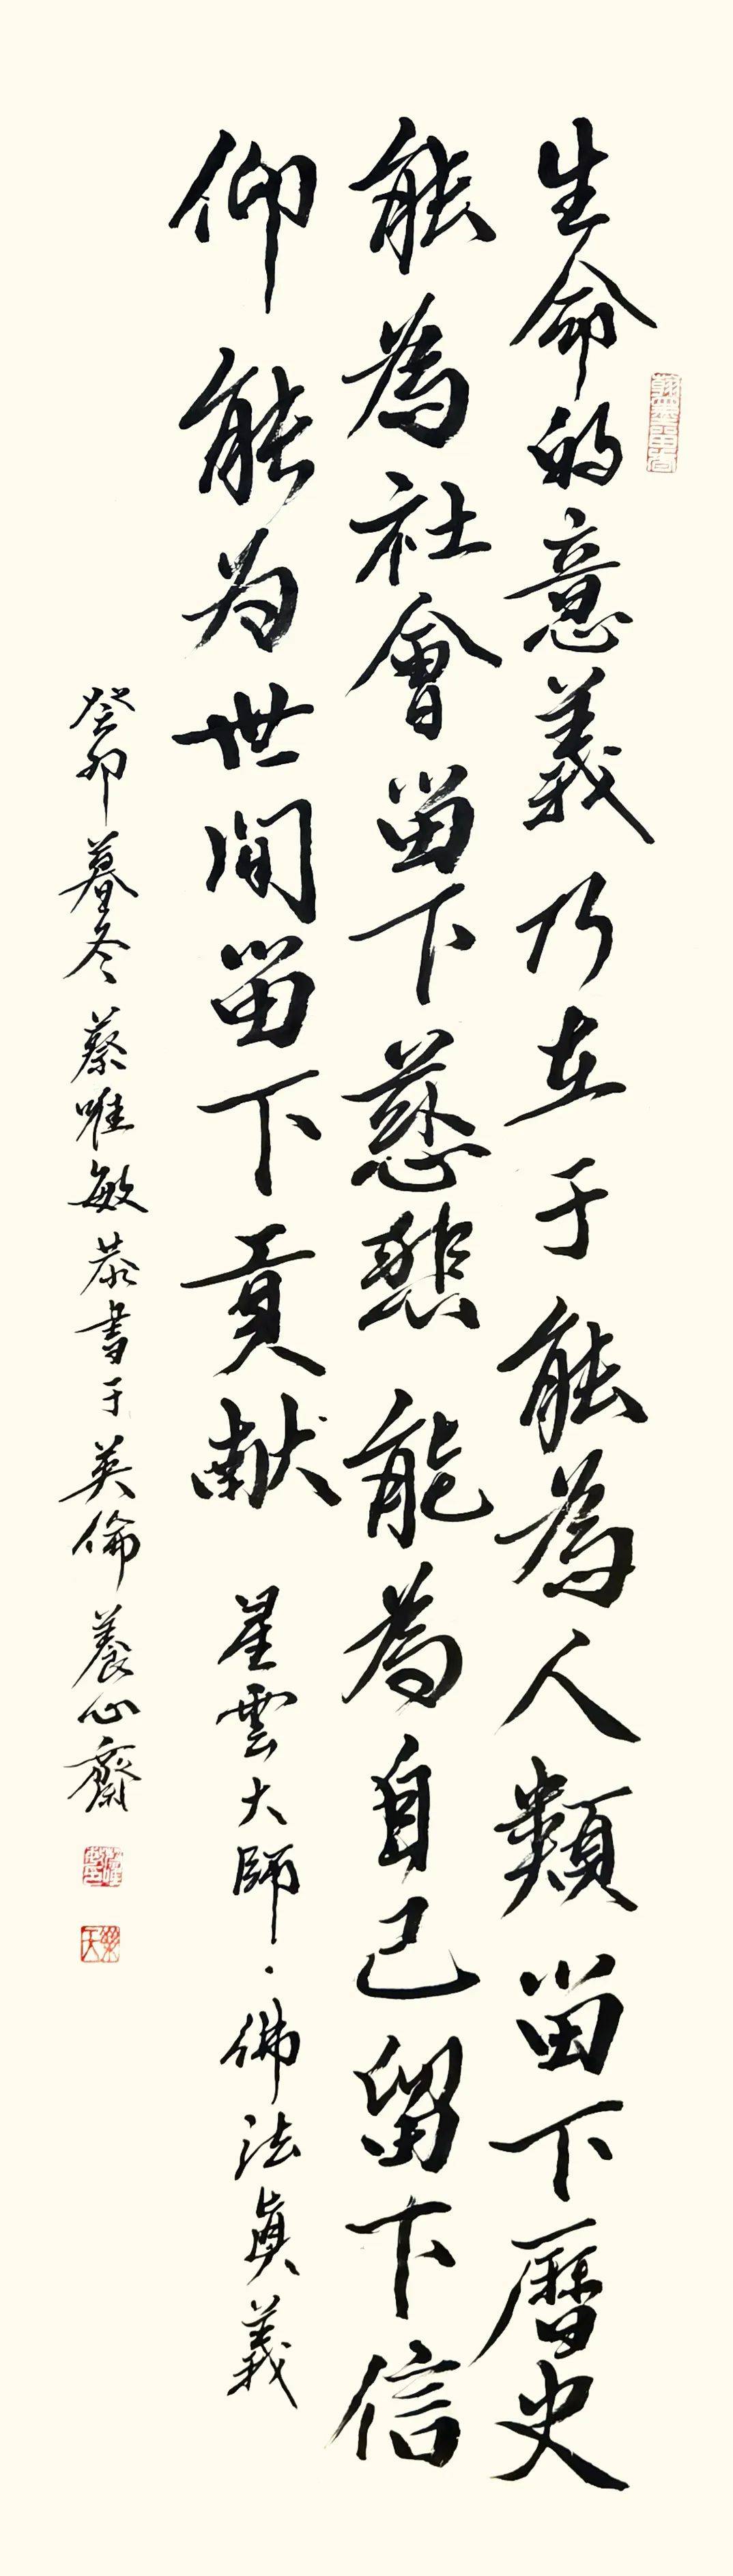 生命的意義乃在于能為人類留下曆史
能為社會留下慈悲能為自己留下信
仰能为世間留下貢献 星雲大師·佛法真義
癸卯暮冬蔡唯敏恭書于英倫養心齋